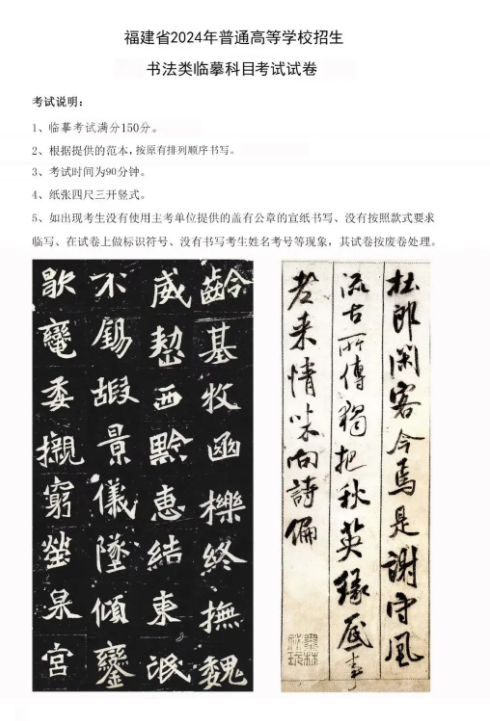 福建省2024年普通高等学校招生
书法类临摹科目考试试卷
考试说明：
1、临摹考试满分150分。
2、根据提供的范本，按原有排列顺序书写。
3、考试时间为90分钟。
4、纸张四尺三开竖式。
5、如出现考生没有使用主考单位提供的盖有公章的宣纸书写、没有按照款式要求
临写、在试卷上做标识符号、没有书写考生姓名考号等现象，其试卷按废卷处理。
齡基牧函櫟終撫魏
威西黔惠結東氓
不錫嘏景儀墜傾鑾
歇委櫬窮塋泉宮
杜郎閑客今焉是謝守風
流古所傳獨把秋英緣底事
老来情味向詩偏